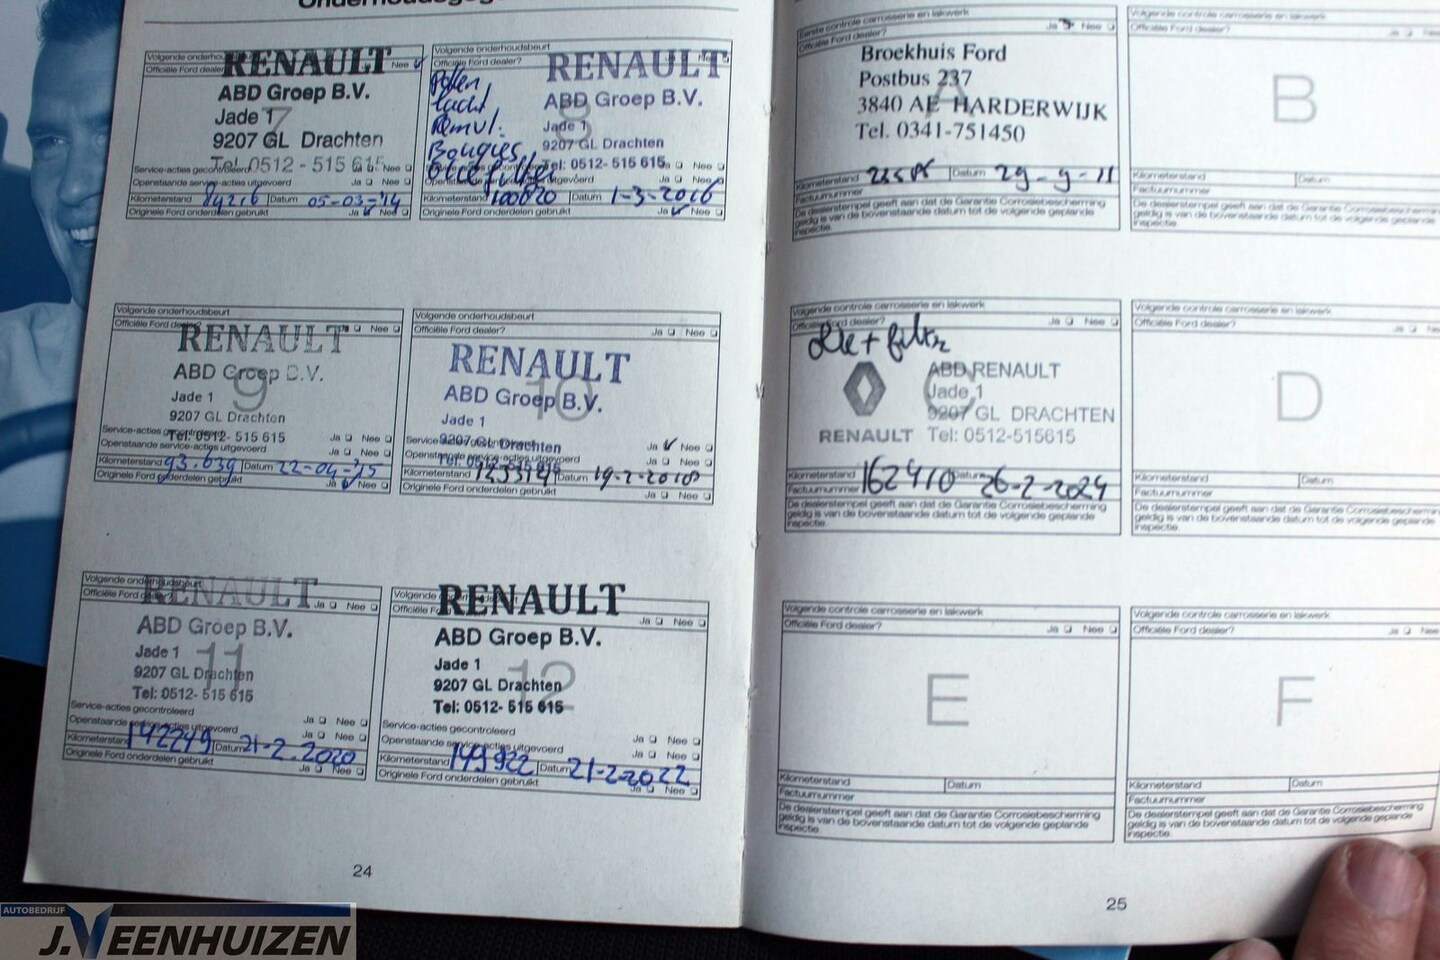 Volgende onderhoudsbeurt
Officiële Ford dealer?
Nee
RENAULT
ABD Groep B.V.
7
Jade 1
9207 GL Drachten
Tel. 0512 - 515 615
Service-acties gecontroleerd
Ja Nee
Openstaande service-acties uitgevoerd
Ja Nee
Kilometerstand 84216 Datum 05-03-'14
Originele Ford onderdelen gebruikt
Ja Nee
Volgende onderhoudsbeurt
Officiële Ford dealer?
RENAULT
ABD Groep B.V.
8
Jade 1
9207 GL Drachten
Tel: 0512- 515 615
Pollen
lucht
Remvl.
Bougies
Oliefilter
Ja Nee
Openstaande service-acties uitgevoerd
Ja Nee
Kilometerstand 100620 Datum 1-3-2016
Originele Ford onderdelen gebruikt
Ja Nee
Volgende onderhoudsbeurt
Officiële Ford dealer?
Ja Nee
RENAULT
ABD Groep B.V.
9
Jade 1
9207 GL Drachten
Tel: 0512- 515 615
Service-acties gecontroleerd
Ja Nee
Openstaande service-acties uitgevoerd
Ja Nee
Kilometerstand 93.639 Datum 22-04-'15
Originele Ford onderdelen gebruikt
Ja Nee
Volgende onderhoudsbeurt
Officiële Ford dealer?
Ja Nee
RENAULT
ABD Groep B.V.
10
Jade 1
9207 GL Drachten
Tel: 0512- 515 615
Ja Nee
Ja Nee
Kilometerstand Datum 19-2-2018
Originele Ford onderdelen gebruikt
Ja Nee
Volgende onderhoudsbeurt
Officiële Ford dealer?
Ja Nee
RENAULT
ABD Groep B.V.
11
Jade 1
9207 GL Drachten
Tel: 0512- 515 615
Service-acties gecontroleerd
Ja Nee
Openstaande service-acties uitgevoerd
Ja Nee
Kilometerstand 142249 Datum 21-2-2020
Originele Ford onderdelen gebruikt
Ja Nee
Volgende onderhoudsbeurt
Officiële Ford
Ja Nee
RENAULT
ABD Groep B.V.
12
Jade 1
9207 GL Drachten
Tel: 0512- 515 615
Service-acties gecontroleerd
Ja Nee
Openstaande service-acties uitgevoerd
Ja Nee
Kilometerstand 149922 Datum 21-2-2022
Originele Ford onderdelen gebruikt
Ja Nee
24
Eerste controle carrosserie en lakwerk
Officiële Ford dealer?
Ja Nee
Broekhuis Ford
Postbus 237
A
3840 AE HARDERWIJK
Tel. 0341-751450
Kilometerstand Datum 29-9-11
Factuurnummer
De dealerstempel geeft aan dat de Garantie Corrosiebescherming
geldig is van de bovenstaande datum tot de volgende geplande
inspectie.
Volgende controle carrosserie en lakwerk
Officiële Ford dealer?
B
Kilometerstand Datum
Factuurnummer
De dealerstempel geeft aan dat de Garantie Corrosiebescherming
geldig is van de bovenstaande datum tot de volgende geplande
inspectie.
Volgende controle carrosserie en lakwerk
Officiële Ford dealer?
Ja Nee
Olie + filter
C
ABD RENAULT
Jade 1
9207 GL DRACHTEN
RENAULT Tel: 0512-515615
Kilometerstand 162410 Datum 26-2-2024
Factuurnummer
De dealerstempel geeft aan dat de Garantie Corrosiebescherming
geldig is van de bovenstaande datum tot de volgende geplande
inspectie.
Volgende controle carrosserie en lakwerk
Officiële Ford dealer?
Ja
D
Kilometerstand Datum
Factuurnummer
De dealerstempel geeft aan dat de Garantie Corrosiebescherming
geldig is van de bovenstaande datum tot de volgende geplande
inspectie.
Volgende controle carrosserie en lakwerk
Officiële Ford dealer?
Ja Nee
E
Kilometerstand Datum
Factuurnummer
De dealerstempel geeft aan dat de Garantie Corrosiebescherming
geldig is van de bovenstaande datum tot de volgende geplande
inspectie.
Volgende controle carrosserie en lakwerk
Officiële Ford dealer?
Ja Nee
F
Kilometerstand Datum
Factuurnummer
De dealerstempel geeft aan dat de Garantie Corrosiebescherming
geldig is van de bovenstaande datum tot de volgende geplande
inspectie.
25
AUTOBEDRIJF
J.VEENHUIZEN